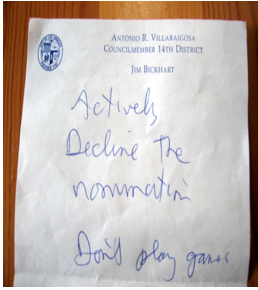 ANTONIO R. VILLARAIGOSA
COUNCILMEMBER 14TH DISTRICT
JIM BICKHART
Actively
Decline the
nomination
Don't play games